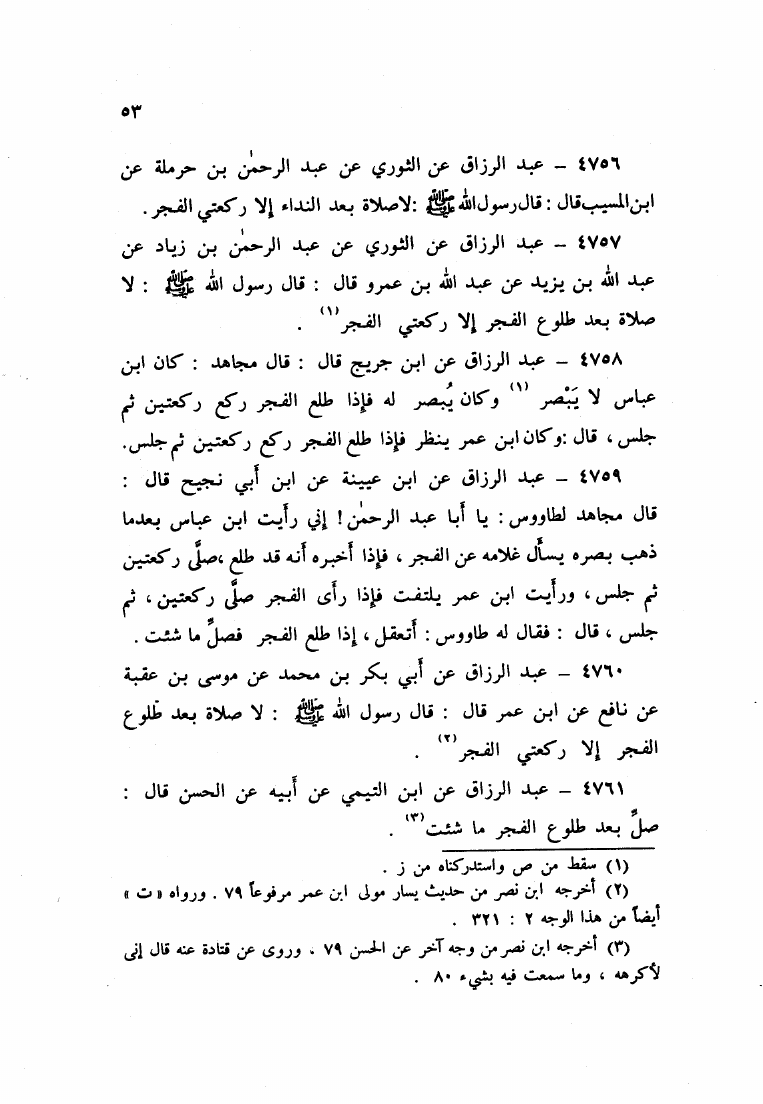 ٥٣
٤٧٥٦ – عبد الرزاق عن الثوري عن عبد الرحمٰن بن حرملة عن
ابن المسيب قال : قال رسول الله ﷺ : لا صلاة بعد النداء إلا ركعتي الفجر .
٤٧٥٧ – عبد الرزاق عن الثوري عن عبد الرحمٰن بن زياد عن
عبد الله بن يزيد عن عبد الله بن عمرو قال : قال رسول الله ﷺ : لا
صلاة بعد طلوع الفجر إلا ركعتي الفجر(١) .
٤٧٥٨ – عبد الرزاق عن ابن جريج قال : قال مجاهد : كان ابن
عباس لا يَبْصر (١) وكان يُبصر له فإذا طلع الفجر ركع ركعتين ثم
جلس ، قال : وكان ابن عمر ينظر فإذا طلع الفجر ركع ركعتين ثم جلس.
٤٧٥٩ – عبد الرزاق عن ابن عيينة عن ابن أبي نجيح قال :
قال مجاهد لطاووس : يا أبا عبد الرحمٰن ! إني رأيت ابن عباس بعدما
ذهب بصره يسأل غلامه عن الفجر ، فإذا أخبره أنه قد طلع ، صلَّى ركعتين
ثم جلس ، ورأيت ابن عمر يلتفت فإذا رأى الفجر صلَّى ركعتين ، ثم
جلس ، قال : فقال له طاووس : أتعقل ، إذا طلع الفجر فصلِّ ما شئت .
٤٧٦٠ – عبد الرزاق عن أبي بكر بن محمد عن موسى بن عقبة
عن نافع عن ابن عمر قال : قال رسول الله ﷺ : لا صلاة بعد طلوع
الفجر إلا ركعتي الفجر(٢) .
٤٧٦١ – عبد الرزاق عن ابن التيمي عن أبيه عن الحسن قال :
صلِّ بعد طلوع الفجر ما شئت(٣) .
(١) سقط من ص واستدركناه من ز .
(٢) أخرجه ابن نصر من حديث يسار مولى ابن عمر مرفوعاً ٧٩ . ورواه « ت »
أيضاً من هذا الوجه ٢ : ٣٢١ .
(٣) أخرجه ابن نصر من وجه آخر عن الحسن ٧٩ . وروى عن قتادة عنه قال إني
لأكرهه ، وما سمعت فيه بشيء ٨٠ .